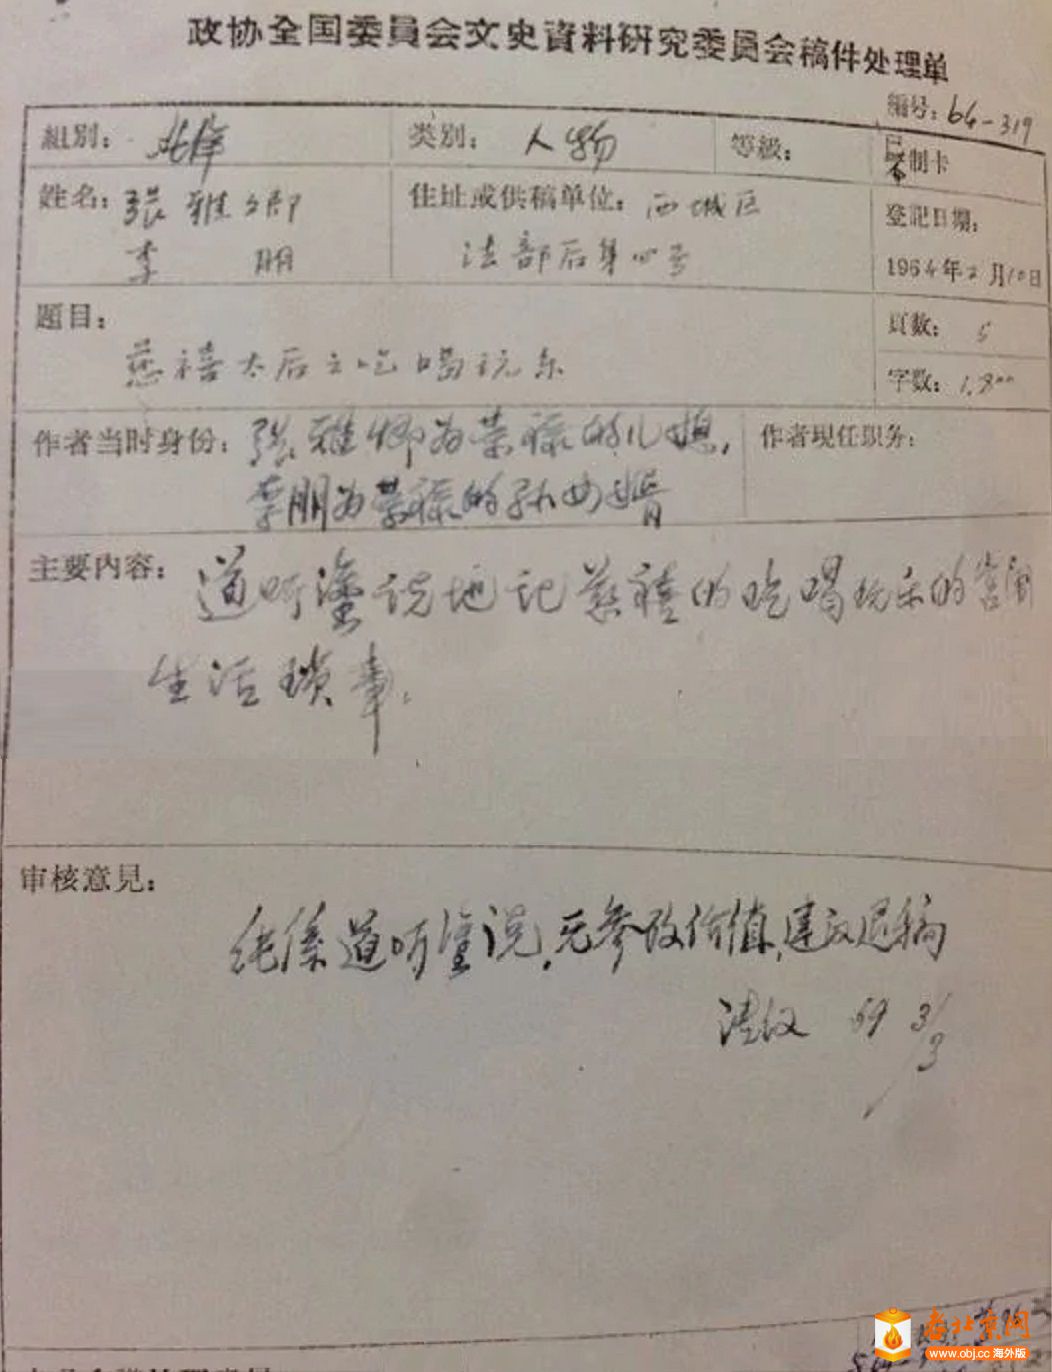 政协全国委員会文史資料研究委員会稿件处理单
編号:64-319
組別: 北洋
类別: 人物
等級:
制卡
姓名: 張雅卿
李 朋
住址或供稿单位: 西城区
法部后身
登記日期:
1964年2月10日
題目:
慈禧太后之吃喝玩乐
頁数: 5
字数: 1,800
作者当时身份: 張雅卿为荣禄的儿媳,
李朋为荣禄的孙女婿
作者現任职务:
主要内容: 道听塗说地记慈禧的吃喝玩乐的宫闱
生活瑣事.
审核意見:
纯係道听塗说,无参改价值,建议退稿
3/3
春北京网
www.obj.cc 海外版